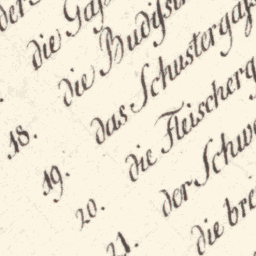 die
die Budißin
18. das Schustergass
19. die Fleischerg
20. der Schw
21. die bre